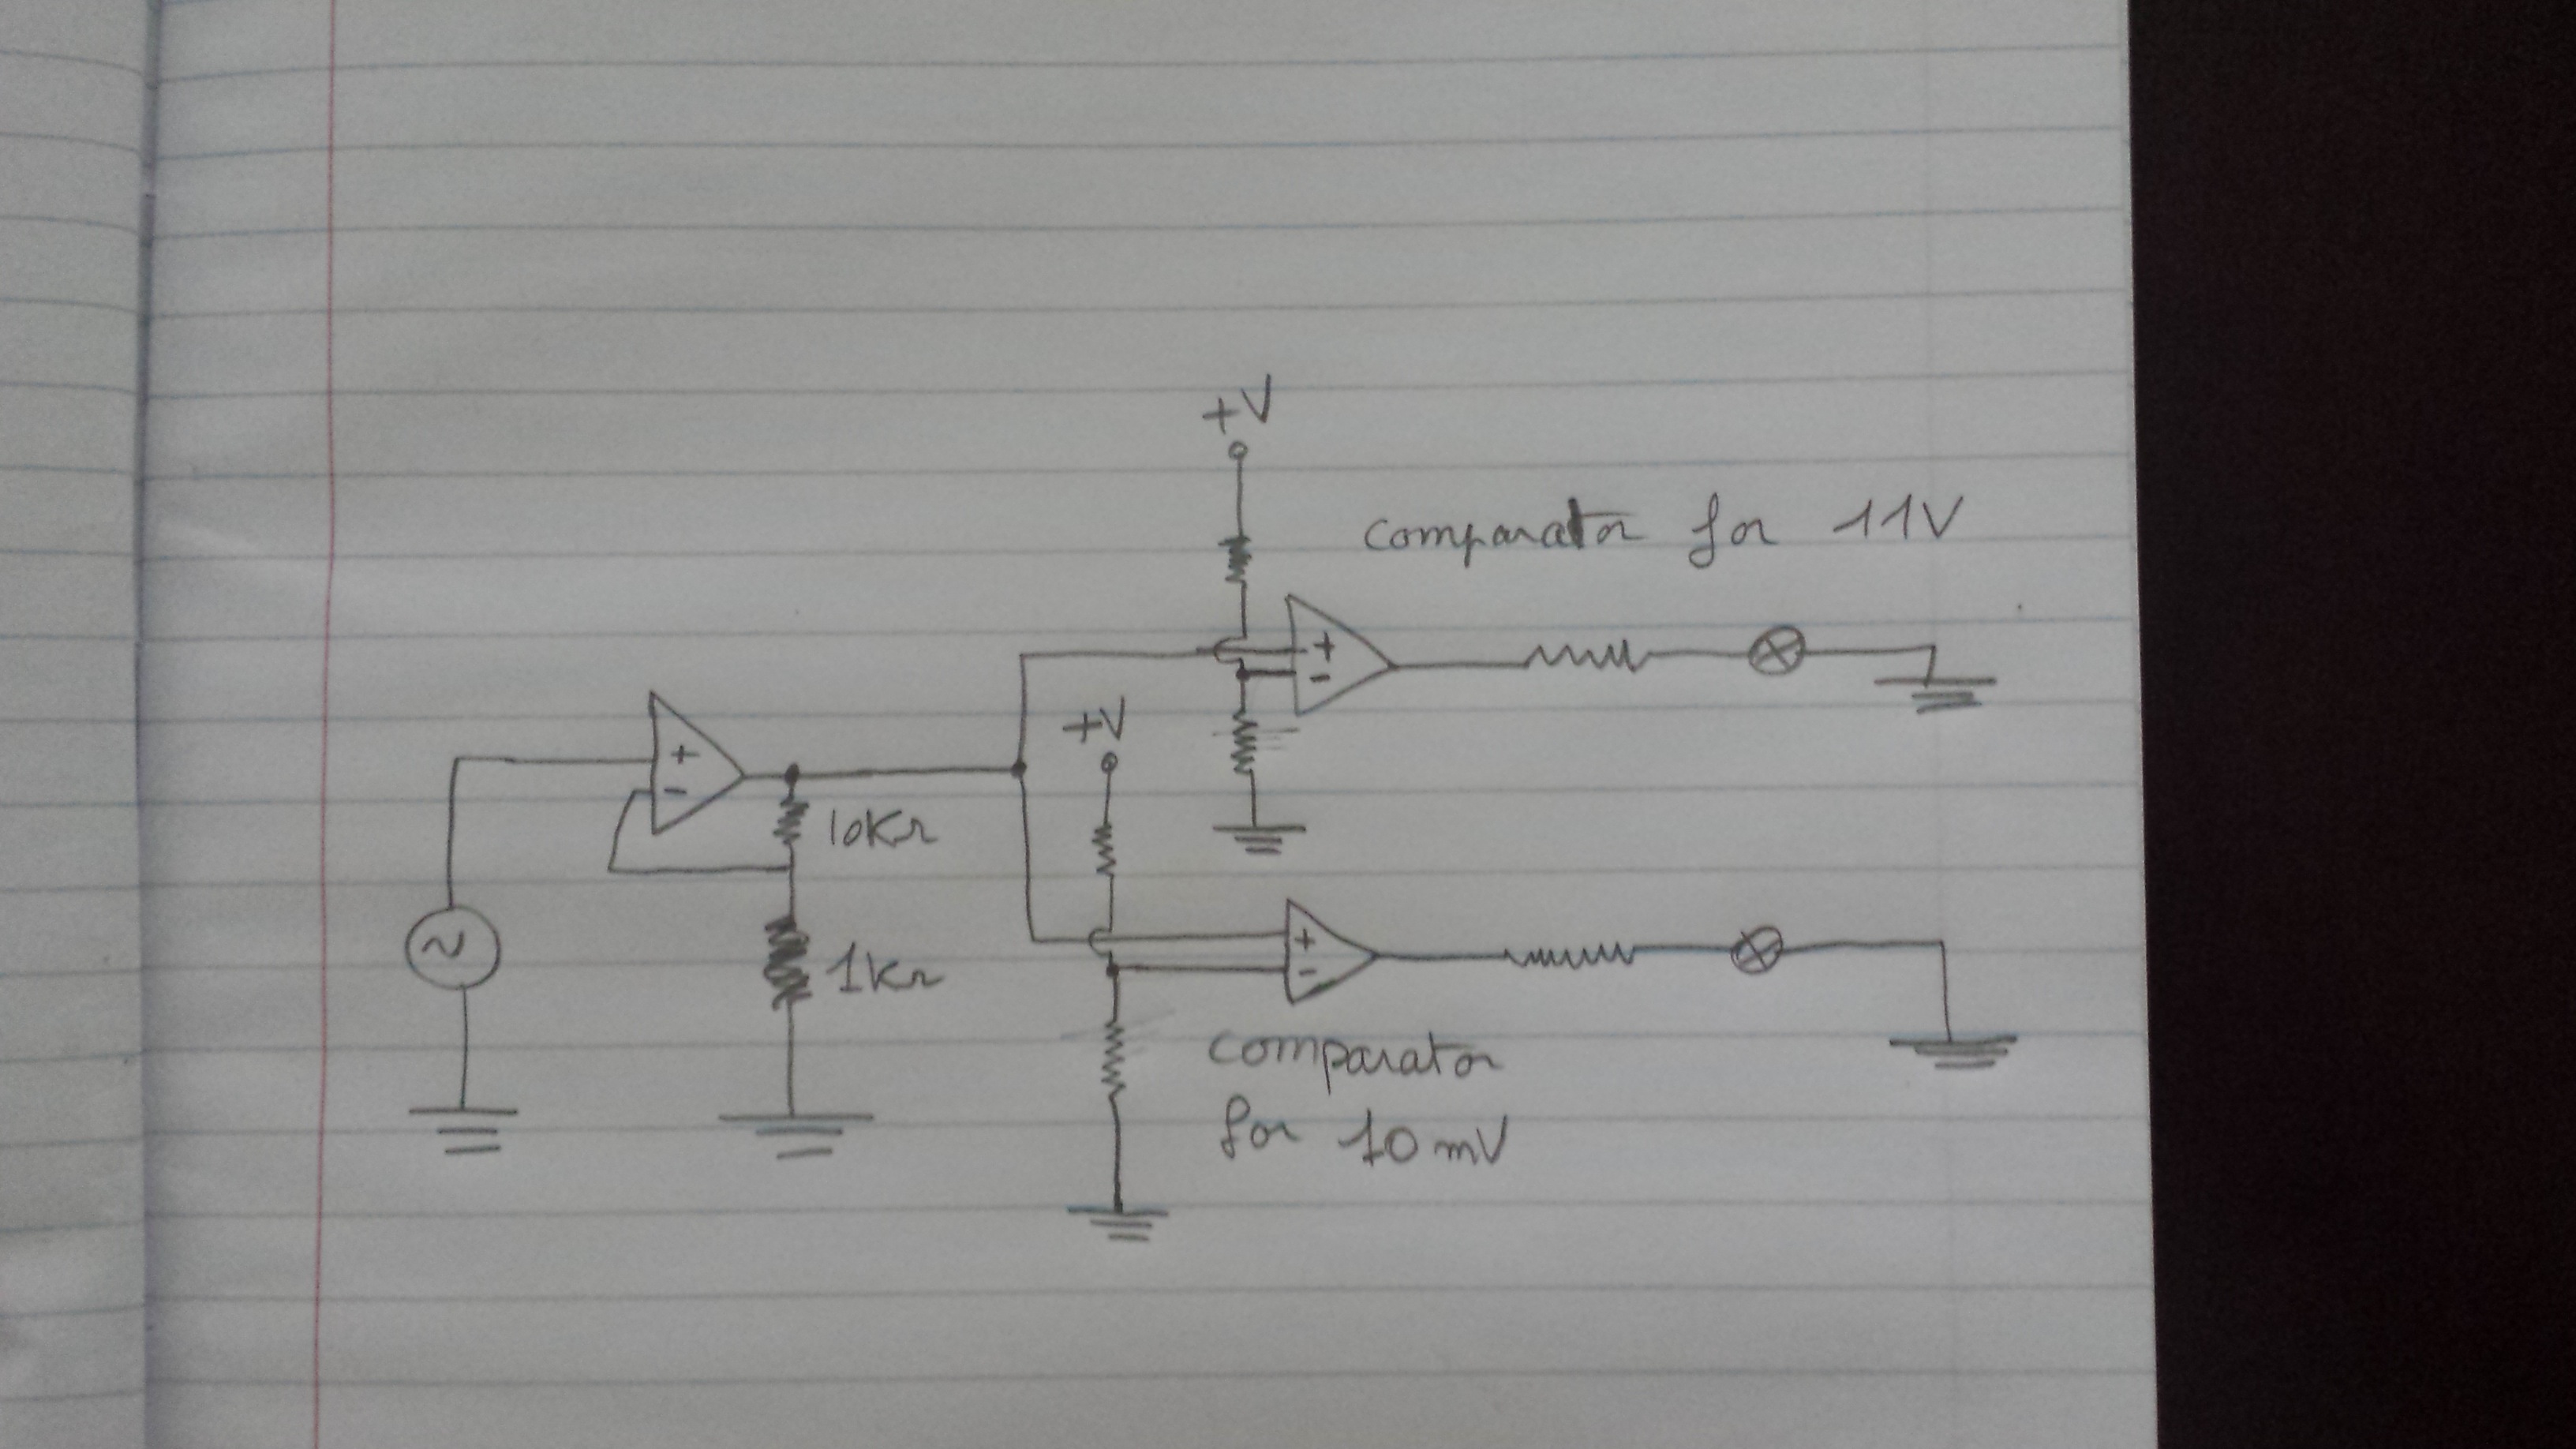 +V
comparator for 11V
+
-
+V
+
-
10KΩ
+
-
1KΩ
comparator
for 10mV